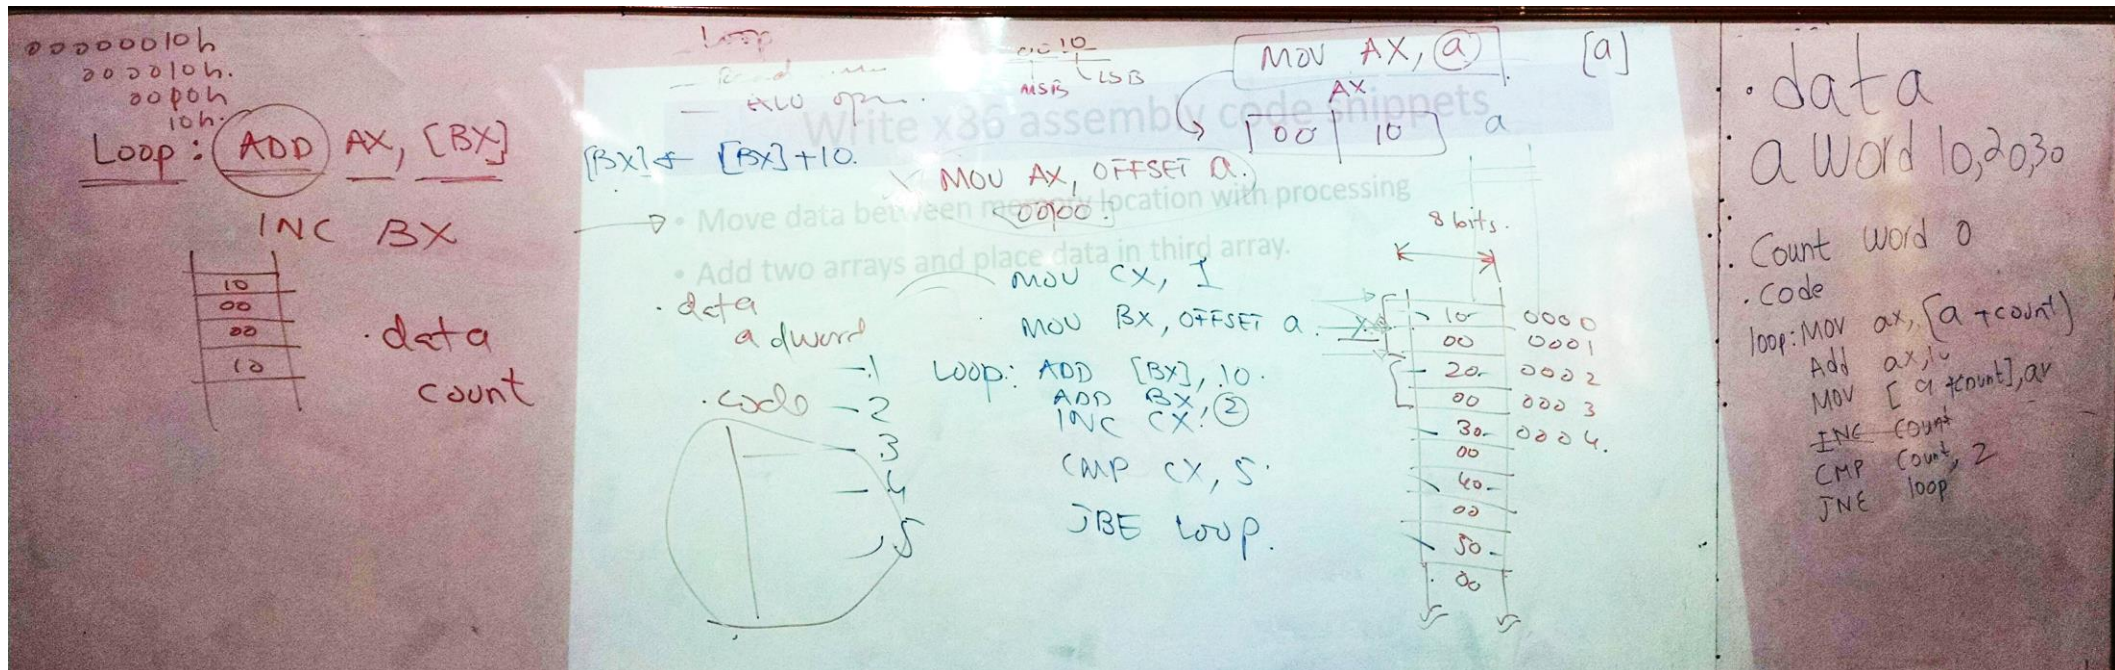 000000010h
000010h.
0010h
10h.
Loop: ADD AX, [BX]
INC BX
10
00
00
10
.data
count
Loop
ALU opn.
0010
MSB LSB
MOV AX, a
[a]
AX
00 10 a
Write x86 assembly code snippets
[BX] ← [BX]+10.
MOV AX, OFFSET a.
0000.
• Move data between memory location with processing
• Add two arrays and place data in third array.
.data
a dword
.code
1
2
3
4
5
MOV CX, 1
MOV BX, OFFSET a.
LOOP: ADD [BX], 10.
ADD BX, 2
INC CX.
CMP CX, 5.
JBE LOOP.
8 bits.
10 0000
00 0001
20 0002
00 0003
30 0004.
00
40
00
50
00
.data
a word 10,20,30
Count word 0
.code
loop: MOV ax, [a + count]
Add ax, 10
MOV [a + count], ax
INC count
CMP count, 2
JNE loop